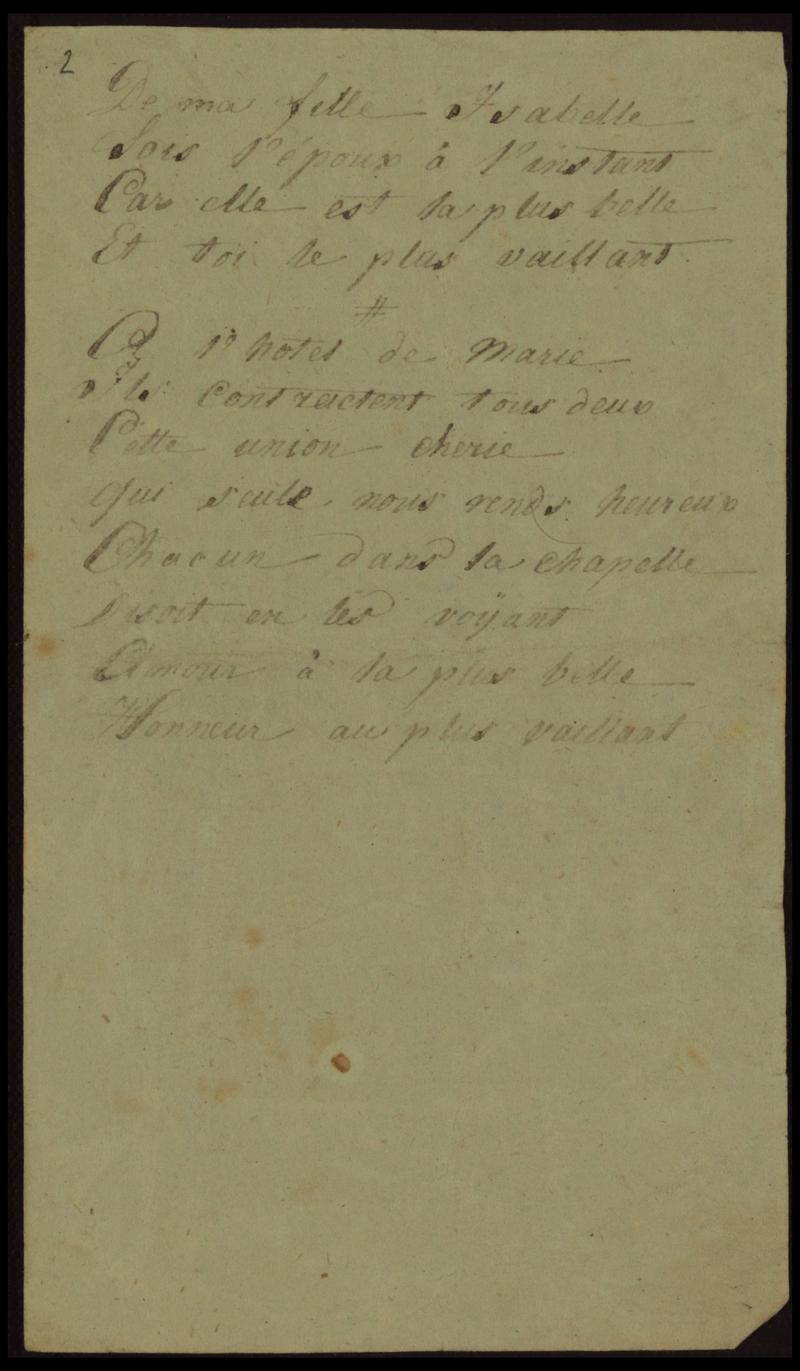 2
De ma fille Isabelle
Sois l'époux à l'instant
Car elle est la plus belle
Et toi le plus vaillant.
#
A l'hotel de Marie
Ils contractent tous deux
Cette union cherie
Qui seule nous rends heureux
Chacun dans la chapelle
Disoit en les voÿant
Amour à la plus belle
Honneur au plus vaillant